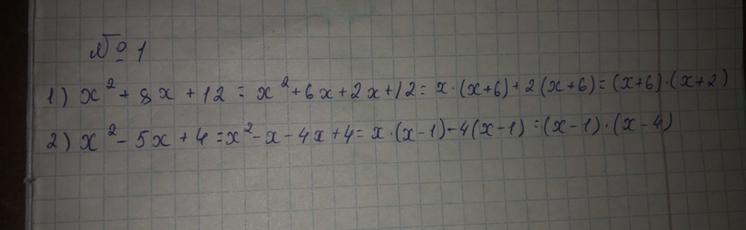 № 1
1) x² + 8x + 12 = x² + 6x + 2x + 12 = x·(x+6) + 2(x+6) = (x+6)·(x+2)
2) x² - 5x + 4 = x² - x - 4x + 4 = x·(x-1) - 4(x-1) = (x-1)·(x-4)